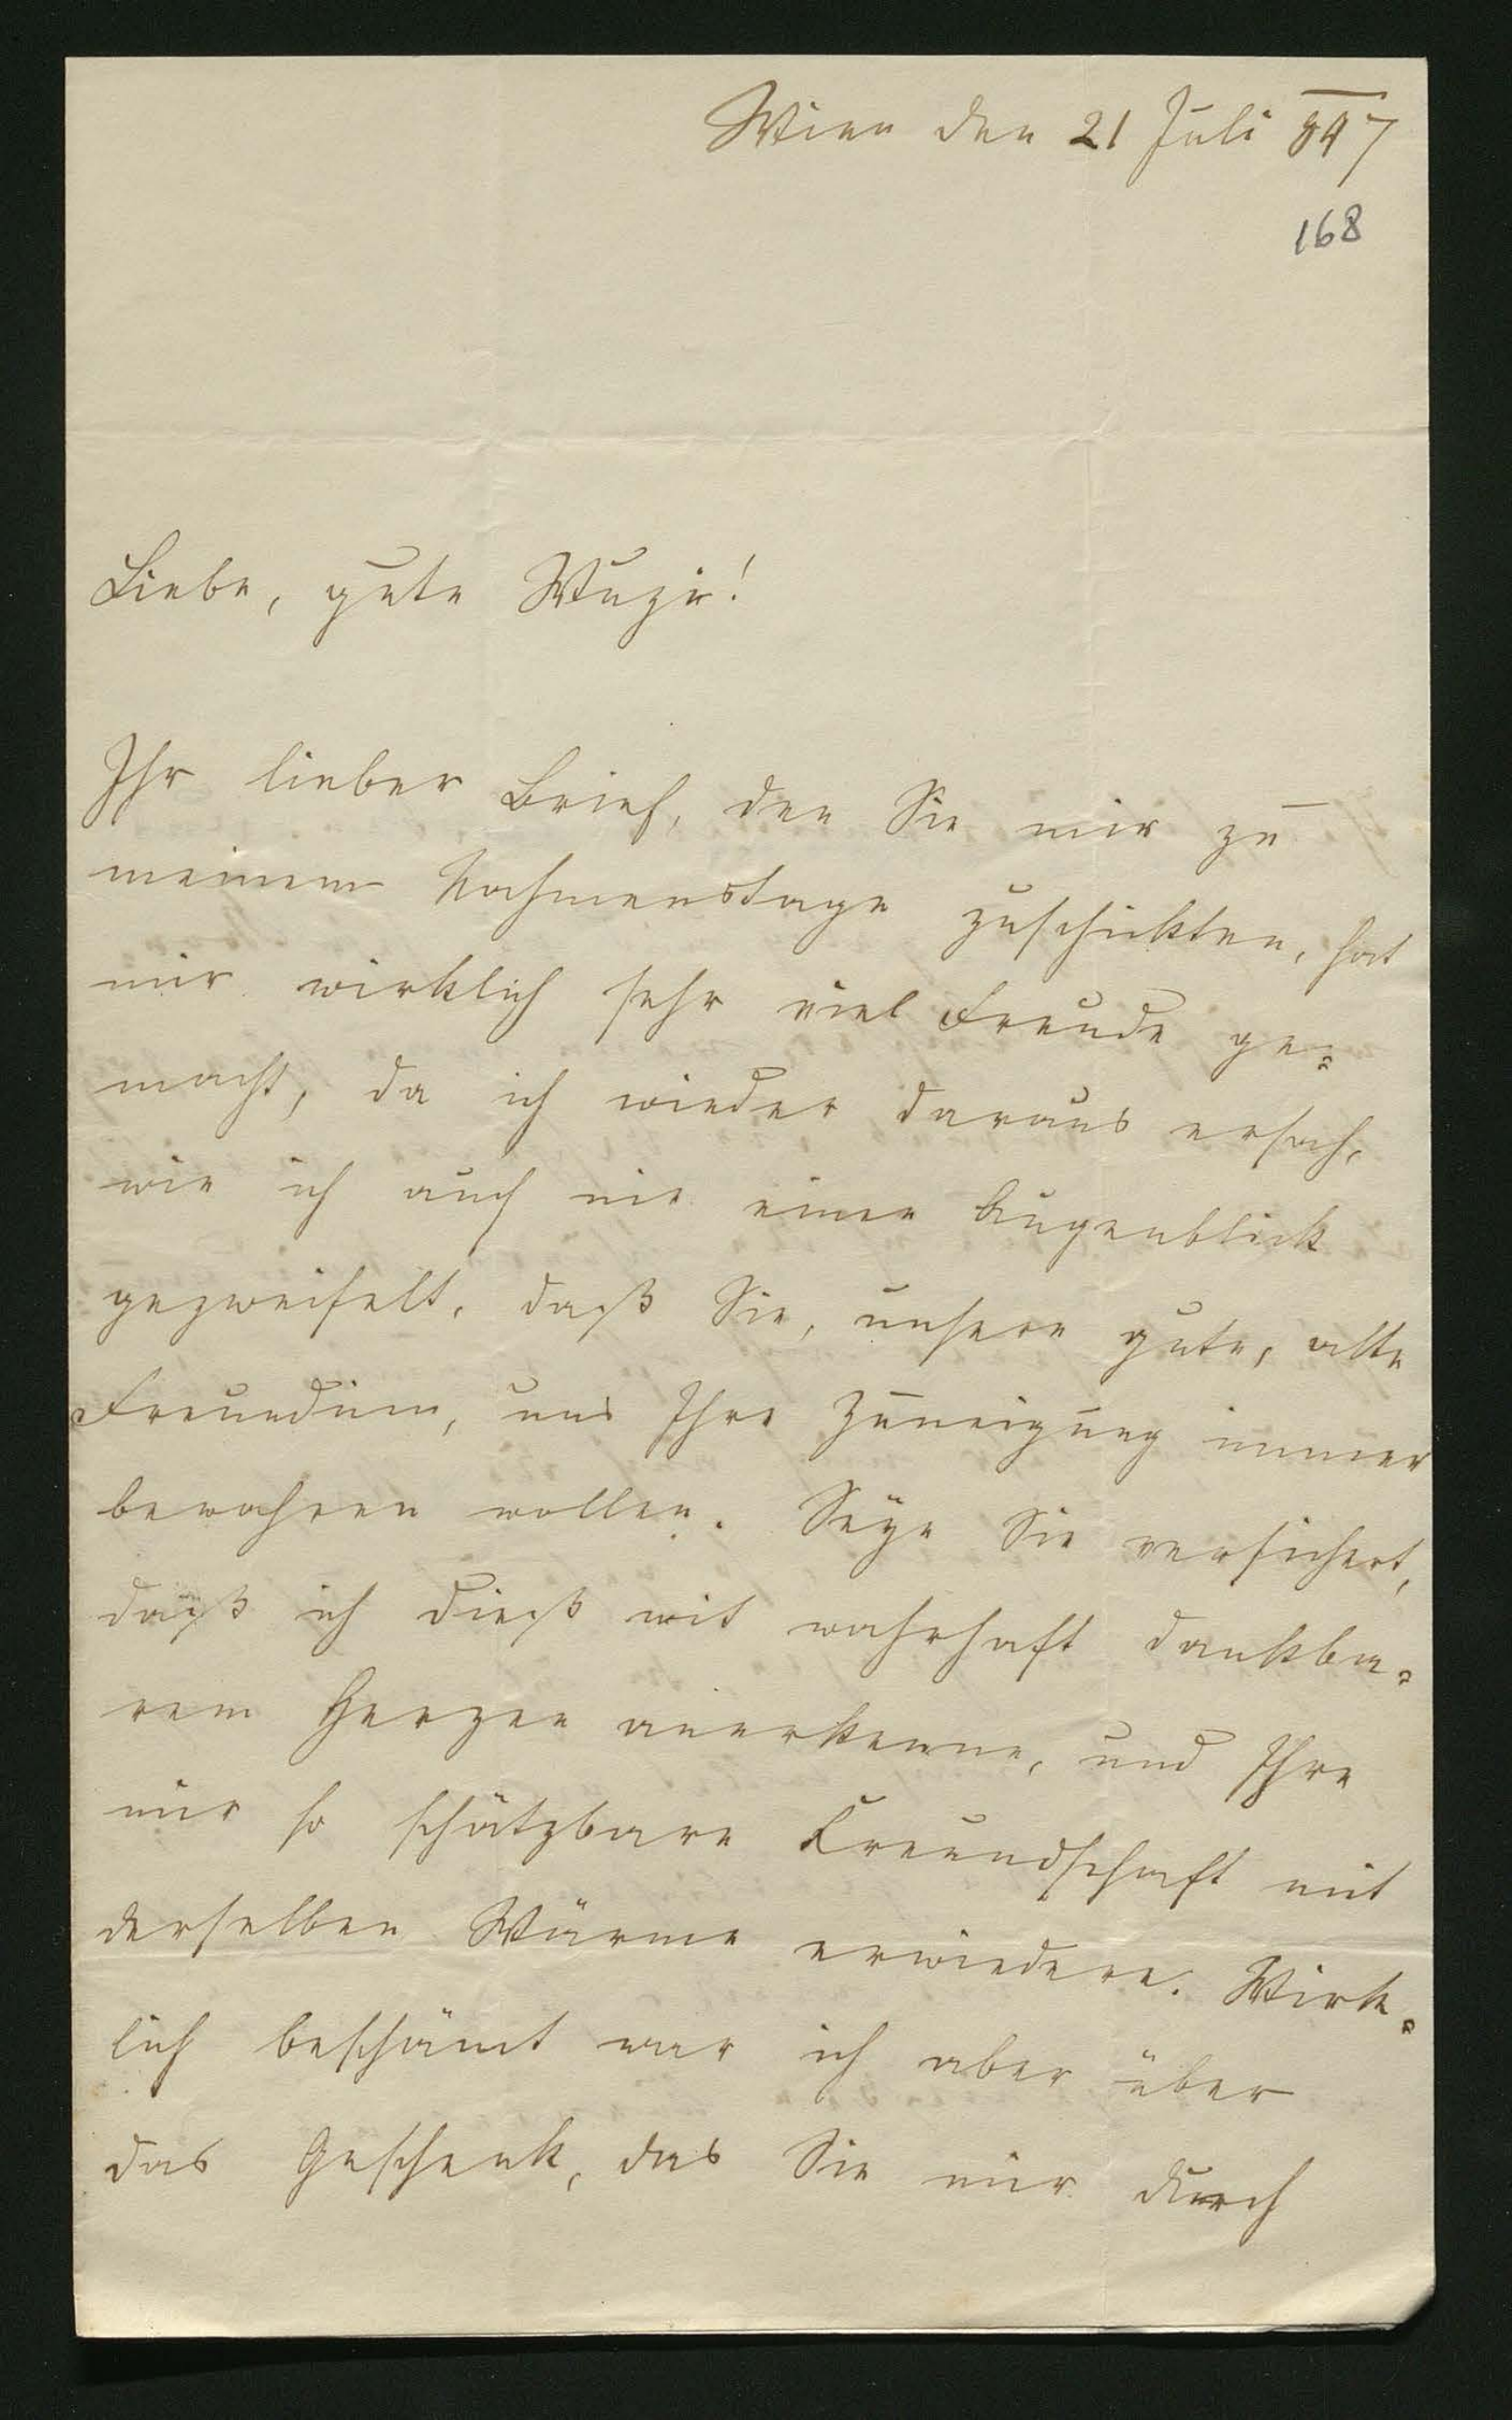 Wien den 21 Juli 847
168
Liebe, gute Wuzi!
Ihr lieber Brief, den Sie mir zu
meinem Nahmenstage zuschickten, hat
mir wirklich sehr viel Freude ge=
macht, da ich wieder daraus ersah,
wie ich auch nie einen Augenblick
gezweifelt, daß Sie, unsere gute, alte
Freundinn, uns Ihre Zuneigung immer
bewahren wollen. Seye Sie versichert,
daß ich dieß mit wahrhaft dankba=
rem Herzen anerkenne, und Ihre
mir so schätzbare Freundschaft mit
derselben Wärme erwiedere. Wirk=
lich beschämt war ich aber über
das Geschenk, das Sie mir durch